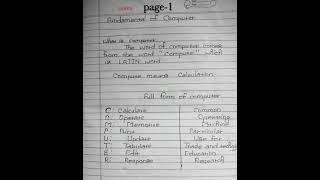 page-1
Fundamental of Computer
What is computer
The word of computer comes
from the word "Compute" which
is LATIN word
Compute means Calculation
Full form of computer
C: Calculate Common
O: Operate Operating
M: Memorise Machine
P: Print Particular
U: Update Use for
T: Tabulate Trade and
E: Edit Education
R: Response Research